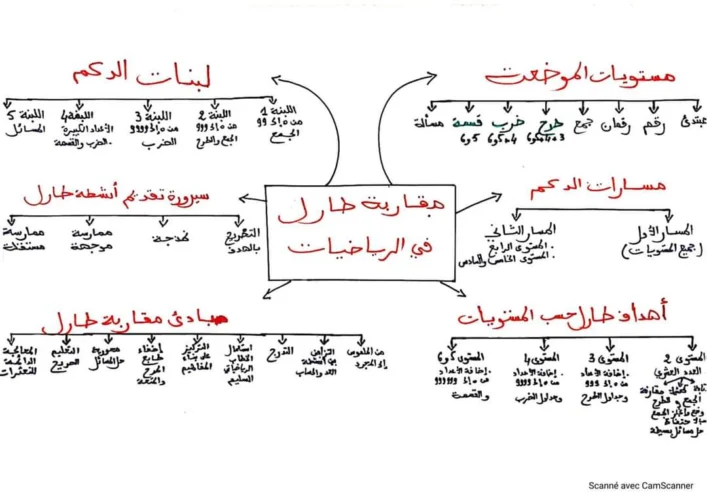 لبنات الدعم
اللبنة 1
من 0 إلى 99
الجمع
اللبنة 2
من 0 إلى 999
الجمع والطرح
اللبنة 3
من 0 إلى 9999
الضرب
اللبنة 4
الأعداد الكبيرة
الضرب والقسمة
اللبنة 5
المسائل
مستويات الموضعت
مبتدئ
رقم
رقمان
جمع
طرح
3 و 4 و 5 و 6
ضرب
4 و 5 و 6
قسمة
5 و 6
مسألة
مقاربة طارل
في الرياضيات
سيرورة تقديم أنشطة طارل
التصريح
بالهدف
نمذجة
ممارسة
موجهة
ممارسة
مستقلة
مسارات الدعم
المسار الأول
(جميع المستويات)
المسار الثاني
. المستوى الرابع
. المستوى الخامس والسادس
مبادئ مقاربة طارل
من الملموس
إلى المجرد
التوازن
بين أنشطة
العد والحساب
التدرج
استعمال
الخطاب
الرياضياتي
السليم
التركيز
على بناء
المفاهيم
إضفاء
طابع
المرح
والمتعة
سيرورة
حل المسائل
التعليم
الصريح
المعالجة
الدائمة
للتعثرات
أهداف طارل حسب المستويات
المستوى 2
العدد العشري
كتابة
مقارنة
الجمع و الطرح
وضع وإنجاز الجمع
بالاحتفاظ
حل مسائل بسيطة
المستوى 3
. إضافة الأعداد
من 0 إلى 999
وجداول الطرح
المستوى 4
. إضافة الأعداد
من 0 إلى 9999
وجداول الضرب
المستوى 5 و 6
. إضافة الأعداد
من 0 إلى 999999
والقسمة
Scanné avec CamScanner